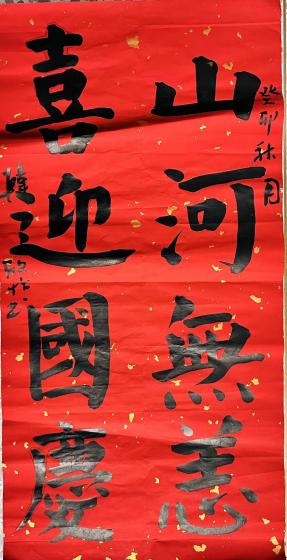 癸卯秋月
山河無恙
喜迎國慶